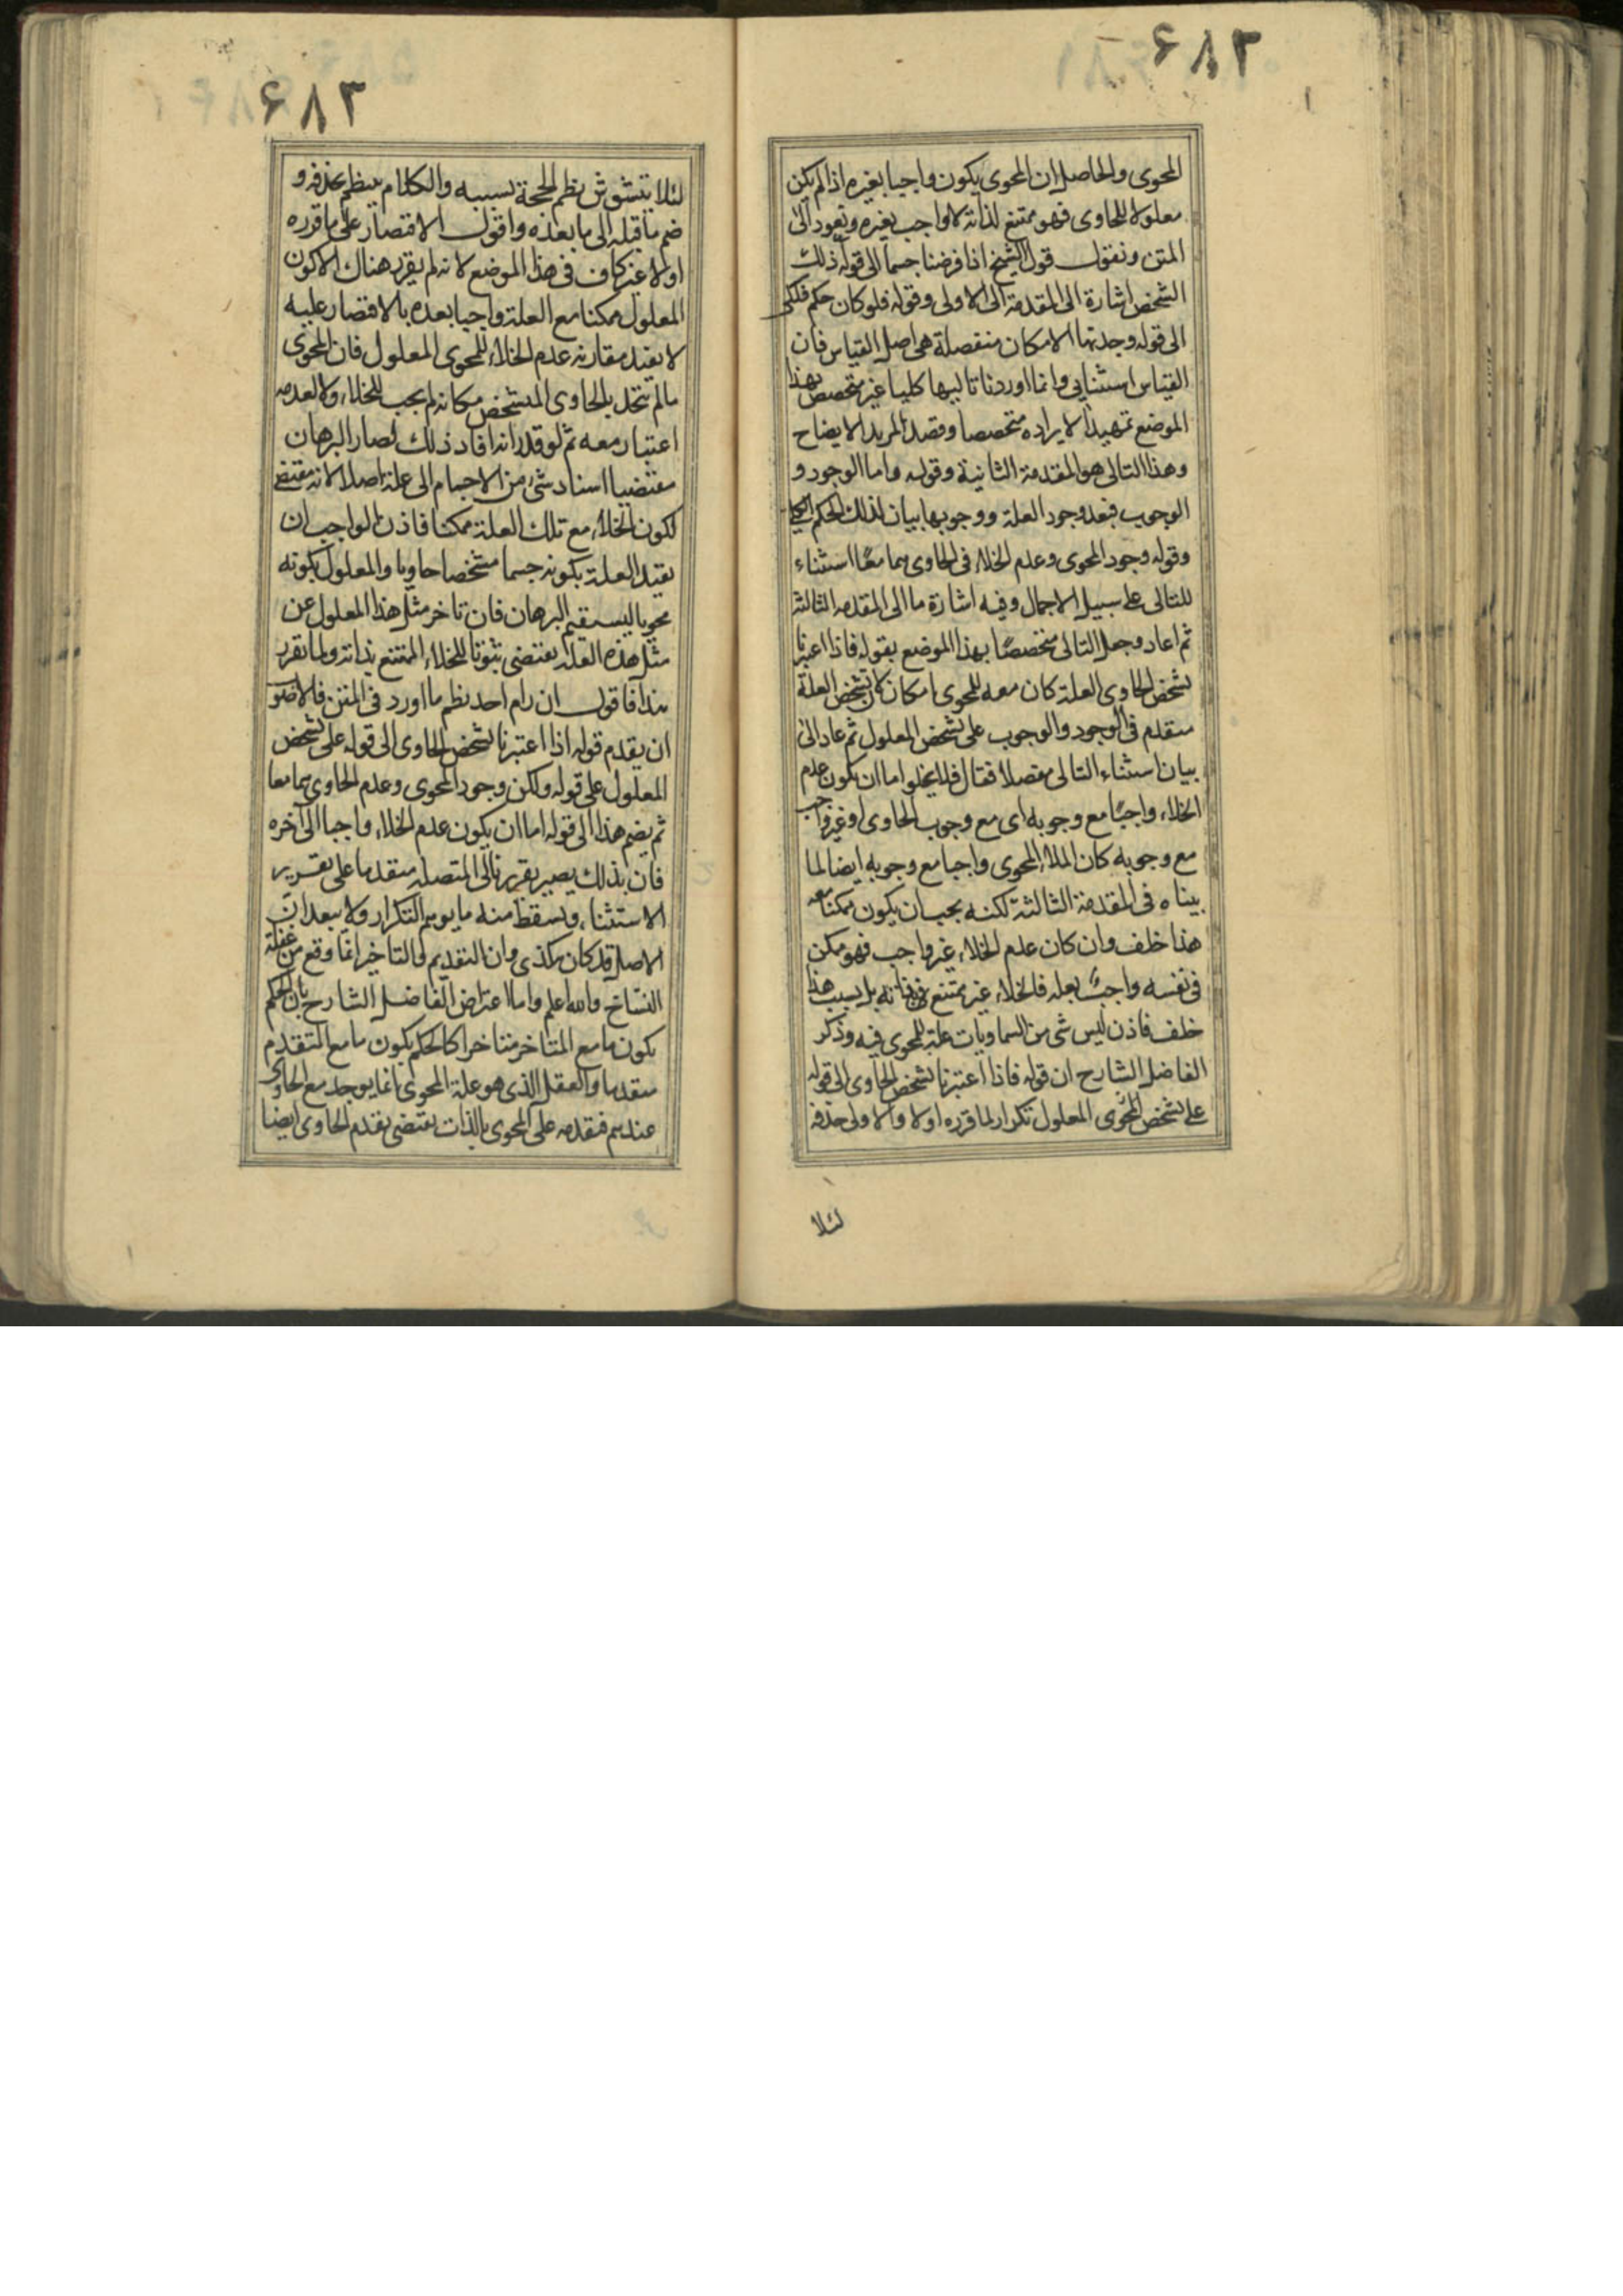 ۶۸۳
المحوى والحاصل ان المحوى يكون واجبا بغيره اذا لم يكن
معلولا للحاوى فهو ممتنع لذاته لا واجب بغيره ونعود الى
المتن ونقول قول الشيخ اذا فرضنا جسما الى قوله ذلك
الشخص اشارة الى المقدمة الاولى وقوله فلو كان حكم فلكى
الى قوله وجدتها الامكان منفصلة هى اصل القياس فان
القياس استثنايى وانما اوردنا تاليها كليا غير متخصص بهذا
الموضع تمهيدا لايراده متخصصا وقصدا لمزيد الايضاح
وهذا التالى هو المقدمة الثانية وقوله واما الوجود و
الوجوب فبعد وجود العلة ووجوبها بيان لذلك الحكم الكلى
وقوله وجود المحوى وعدم الخلاء فى الحاوى هما معًا استثناء
للتالى على سبيل الاجمال وفيه اشارة ما الى المقدمه الثالثة
ثم اعاد وجعل التالى متخصصًا بهذا الموضع بقوله فاذا اعتبرنا
تشخص الحاوى العلة كان معه للمحوى امكان لان تشخص العلة
متقدم فى الوجود والوجوب على تشخص المعلول ثم عاد الى
بيان استثناء التالى مفصلا فقال فلا يخلوا اما ان يكون عدم
الخلاء واجبًا مع وجوبه اى مع وجوب الحاوى او غير واجب
مع وجوبه كان الملاء المحوى واجبا مع وجوبه ايضا لما
بيناه فى المقدمة الثالثة لكنه يجب ان يكون ممكنا معه
هذا خلف وان كان عدم الخلاء غير واجب فهو ممكن
فى نفسه واجب بعلة فالخلاء غير ممتنع فى ذاته بل بسبب هذا
خلف فاذن ليس شى من السماويات علة للمحوى فيه وذكر
الفاضل الشارح ان قوله فاذا اعتبرنا تشخص الحاوى الى قوله
على تشخص المحوى المعلول تكرار لما قرره اولا والاولى حذفه
لئلا
۶۸۳
لئلا يتشوش نظم الحجة بسببه والكلام ينظم بحذفه و
ضم ما قبله الى ما بعده واقول الاقتصار على ما قرره
اولا غير كاف فى هذا الموضع لانه لم يقرر هناك الا كون
المعلول ممكنا مع العلة واجبا بعده بالاقتصار عليه
لا يفيد مقارنة عدم الخلاء للمحوى المعلول فان المحوى
ما لم يتحدد بالحاوى المتشخص مكانه لم يجب للخلاء ولا لعدمه
اعتبار معه ثم لو قدر انه افاد ذلك لصار البرهان
مقتضيا اسناد شئ من الاجسام الى علة اصلا لانه مقتضى
لكون الخلاء مع تلك العلة ممكنا فاذن الواجب ان
يقيد العلة بكونه جسما متشخصا حاويا والمعلول بكونه
محويا ليستقيم البرهان فان تاخر مثل هذا المعلول عن
مثل هذه العلة يقتضى ثبوتا للخلاء الممتنع بذاته ولما تقرر
هذا فاقول ان رام احد نظم ما اورد فى المتن فالاصوب
ان يقدم قوله اذا اعتبرنا تشخص الحاوى الى قوله على تشخص
المعلول على قوله ولكن وجود المحوى وعدم الحاوى هما معا
ثم يضم هذا الى قوله اما ان يكون عدم الخلاء واجبا الى آخره
فان بذلك يصير تقرير تالى المتصلة متقدما على تقرير
الاستثناء ويسقط منه ما يوهم التكرار ولا يبعد ان
الاصل قد كان هكذى وان التقديم والتاخير انما وقع من غفلة
النساخ والله اعلم واما اعتراض الفاضل الشارح بان الحكم
بكون ما مع المتاخر متاخرا كالحكم بكون ما مع المتقدم
متقدما والعقل الذى هو علة المحوى انما يوجد مع الحاوى
عندهم فتقدمه على المحوى بالذات يقتضى تقدم الحاوى ايضا